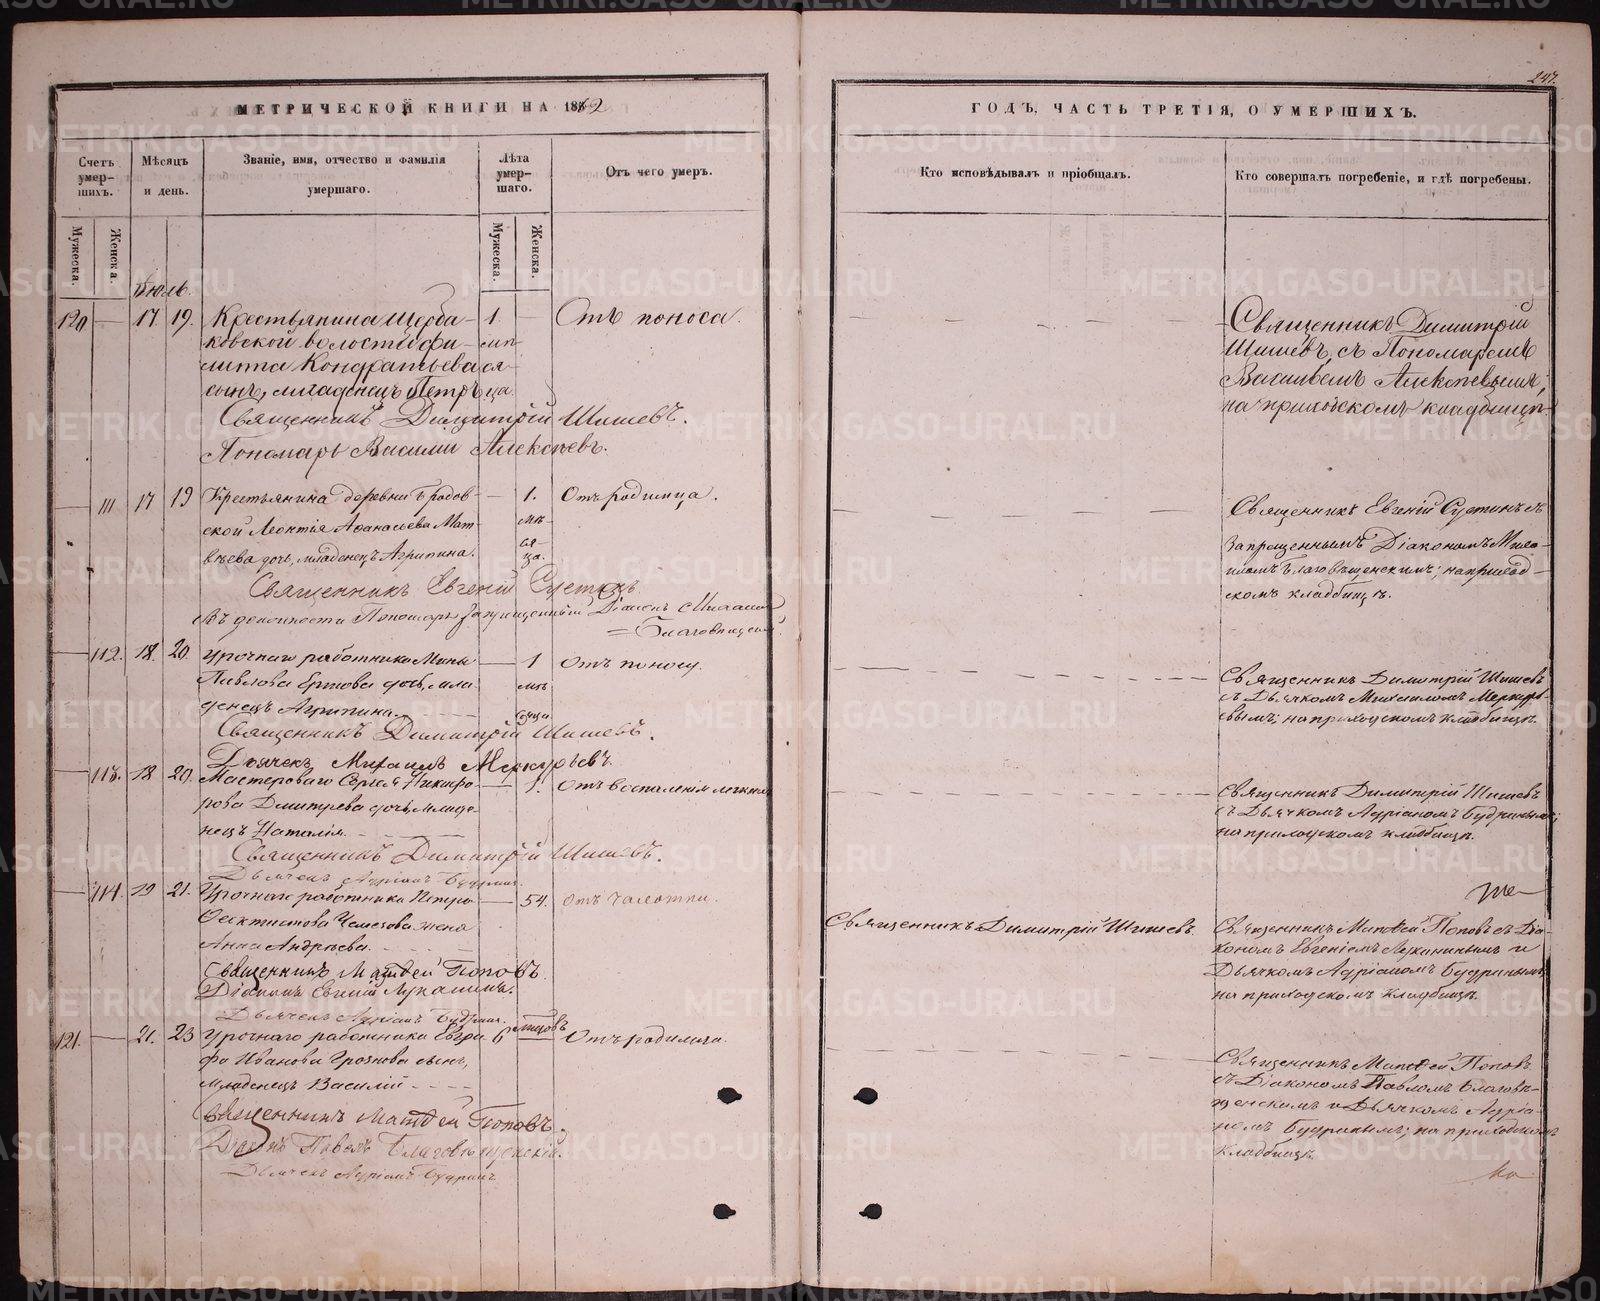 МЕТРИЧЕСКОЙ КНИГИ НА 1862
Счетъ умер-шихъ.
Мѣсяцъ и день.
Званіе, имя, отчество и фамилія умершаго.
Лѣта умер-шаго.
Отъ чего умеръ.
Мужеска.
Женска.
Мужеска.
Женска.
Іюль.
120 — 17 19. Крестьянина Щерба- 1. — Отъ поноса.
ковской волости Фи- мѣ-
липпа Кондратьева ся-
сынъ, младенецъ Петръ ца.
Священникъ Димитрій Шишевъ.
Пономарь Василій Алексѣевъ.
— 111 17 19 Крестьянина деревни Бродов- — 1. Отъ родимца.
ской Леонтія Аѳанасьева Мат- мѣ-
вѣева дочь, младенецъ Агрипина. ся-
ца.
Священникъ Евгеній Сустинъ
Въ должности Пономаря запрещенный Діаконъ Михаилъ
= Благовѣщенскій.
— 112. 18. 20. Урочнаго работника Мины — 1 Отъ поносу.
Павлова Ершова дочь, мла- мѣ-
денецъ Агрипина. сяца
Священникъ Димитрій Шишевъ.
Дьячекъ Михаилъ Меркурьевъ.
— 113. 18 20. Мастероваго Сергѣя Никифо- — 1. Отъ воспаленія легкихъ
рова Дмитріева дочь, младе-
нецъ Наталія.
Священникъ Димитрій Шишевъ.
Дьячекъ Адріанъ Будринъ.
— 114. 19 21. Урочнаго работника Петра — 54. Отъ чахотки.
Ѳеоктистова Чемезова жена
Анна Андрѣева.
Священникъ Матѳей Поповъ
Діаконъ Евгеній Лукининъ.
Дьячекъ Адріанъ Будринъ.
121. — 21. 23 Урочнаго работника Евгра- 6 мѣсяцовъ Отъ родимца.
фа Иванова Грознова сынъ,
младенецъ Василій
Священникъ Матѳей Поповъ.
Діаконъ Павелъ Благовѣщенскій.
Дьячекъ Адріанъ Будринъ.
247.
ГОДЪ, ЧАСТЬ ТРЕТІЯ, О УМЕРШИХЪ.
Кто исповѣдывалъ и пріобщалъ.
Кто совершалъ погребеніе, и гдѣ погребены.
Священникъ Димитрій
Шишевъ, съ Пономаремъ
Васильемъ Алексѣевымъ;
на приходскомъ кладбищѣ
Священникъ Евгеній Сустинъ съ
запрещеннымъ Діакономъ Миха-
иломъ Благовѣщенскимъ; на приход-
скомъ кладбищѣ.
Священникъ Димитрій Шишевъ
съ Дьячкомъ Михаиломъ Меркурь-
евымъ; на приходскомъ кладбищѣ.
Священникъ Димитрій Шишевъ
съ Дьячкомъ Адріаномъ Будринымъ;
на приходскомъ кладбищѣ.
Священникъ Димитрій Шишевъ.
Священникъ Матѳей Поповъ съ Діа-
кономъ Евгеніемъ Лукининымъ и
Дьячкомъ Адріаномъ Будринымъ;
на приходскомъ кладбищѣ.
Священникъ Матѳей Поповъ
съ Діакономъ Павломъ Благовѣ-
щенскимъ и Дьячкомъ Адріа-
номъ Будринымъ; на приходскомъ
кладбищѣ.
METRIKI.GASO-URAL.RU